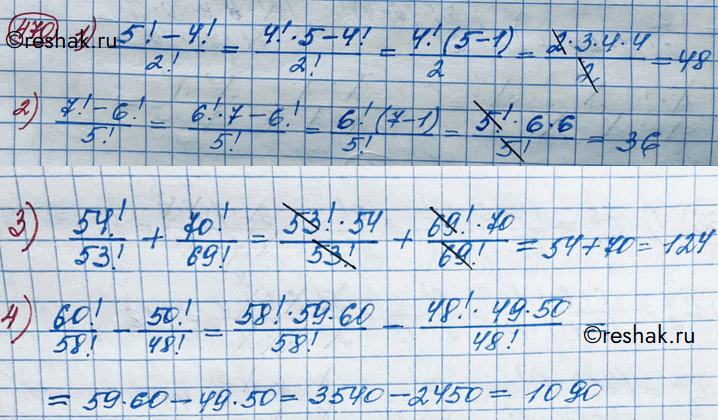 470 1) (5! - 4!)/2! = (4!·5 - 4!)/2! = (4!(5-1))/2 = (2·3·4·4)/2 = 48
©reshak.ru
2) (7! - 6!)/5! = (6!·7 - 6!)/5! = (6!(7-1))/5! = (5!·6·6)/5! = 36
3) 54!/53! + 70!/69! = (53!·54)/53! + (69!·70)/69! = 54 + 70 = 124
4) 60!/58! - 50!/48! = (58!·59·60)/58! - (48!·49·50)/48! =
©reshak.ru
= 59·60 - 49·50 = 3540 - 2450 = 1090